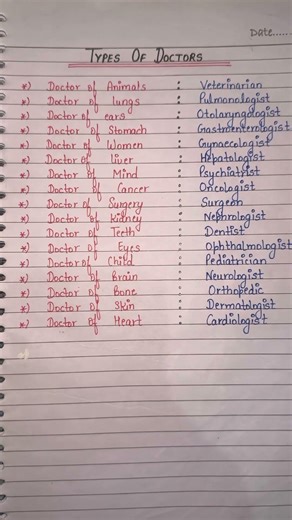 Date......
TYPES OF DOCTORS
*) Doctor of Animals : Veterinarian
*) Doctor of lungs : Pulmonologist
*) Doctor of ears : Otolaryngologist
*) Doctor of Stomach : Gastroenterologist
*) Doctor of Women : Gynaecologist
*) Doctor of liver : Hepatologist
*) Doctor of Mind : Psychiatrist
*) Doctor of Cancer : Oncologist
*) Doctor of Surgery : Surgeon
*) Doctor of Kidney : Nephrologist
*) Doctor of Teeth : Dentist
*) Doctor of Eyes : Ophthalmologist
*) Doctor of Child : Pediatrician
*) Doctor of Brain : Neurologist
*) Doctor of Bone : Orthopedic
*) Doctor of Skin : Dermatologist
*) Doctor of Heart : Cardiologist